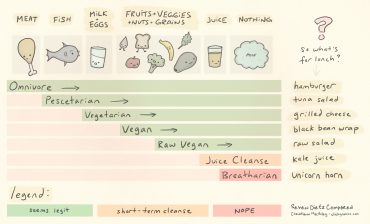 MEAT
FISH
MILK
EGGS
FRUITS+VEGGIES
+NUTS+GRAINS
JUICE
NOTHING
?
so what's
for lunch?
AIR
Omnivore
hamburger
Pescetarian
tuna salad
Vegetarian
grilled cheese
Vegan
black bean wrap
Raw Vegan
raw salad
Juice Cleanse
kale juice
Breatharian
unicorn horn
legend:
seems legit
short-term cleanse
NOPE
Seven Diets Compared